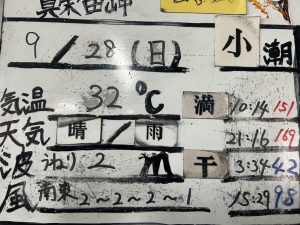 真栄田岬
9/28(日) 小潮
気温 32℃ 満 10:14 151
天気 晴/雨 21:16 169
波 うねり 2 m 干 3:34 42
風 南東 2~2~2~1 15:29 98